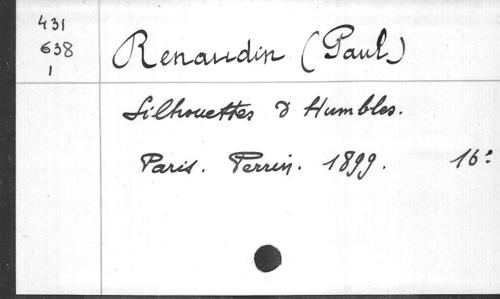 431
638
1
Renaudin (Paul)
Silhouettes d'Humbles.
Paris. Perrin. 1899. 16º